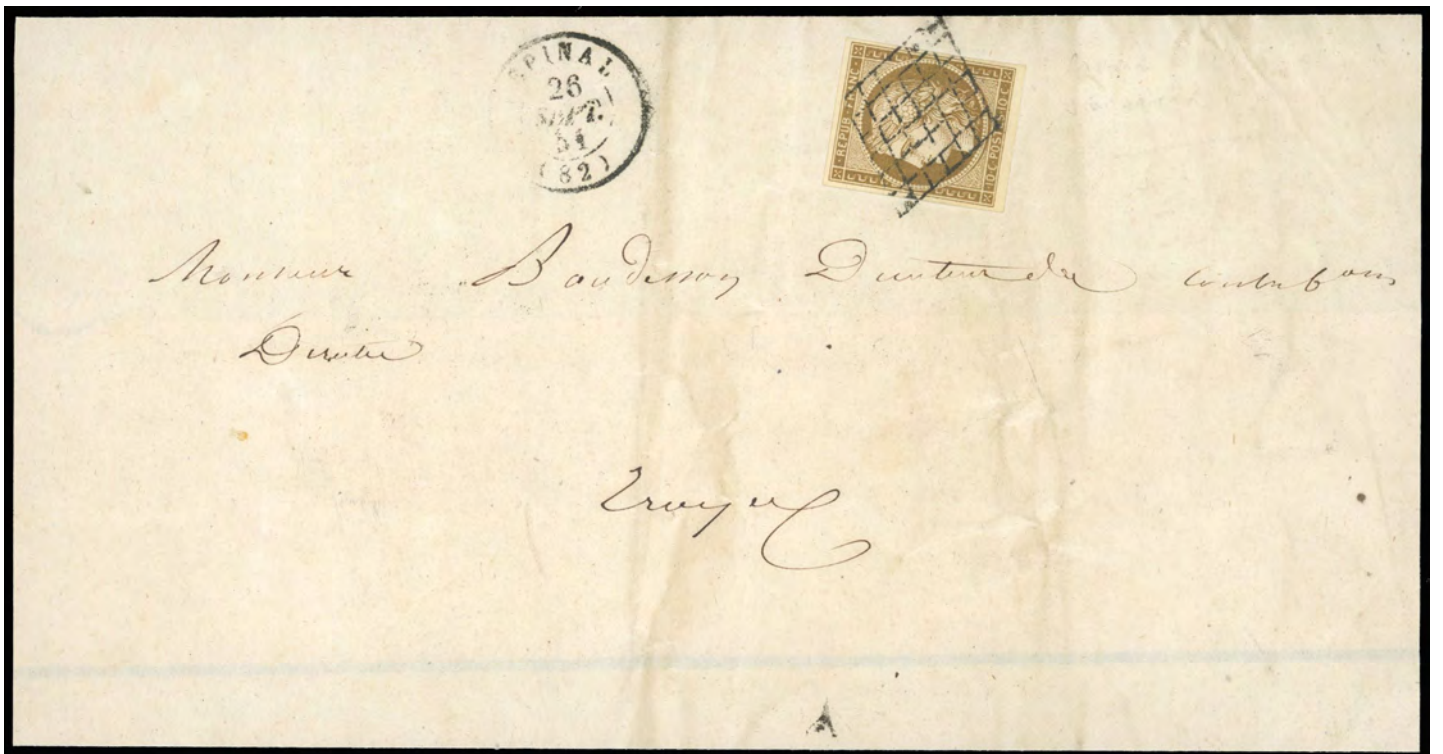 EPINAL
26
SEPT.
51
(82)
REPUB. FRANC.
10 C. POSTES 10 C.
Monsieur Baudesson Directeur des contrib ons
Directes
Troyes